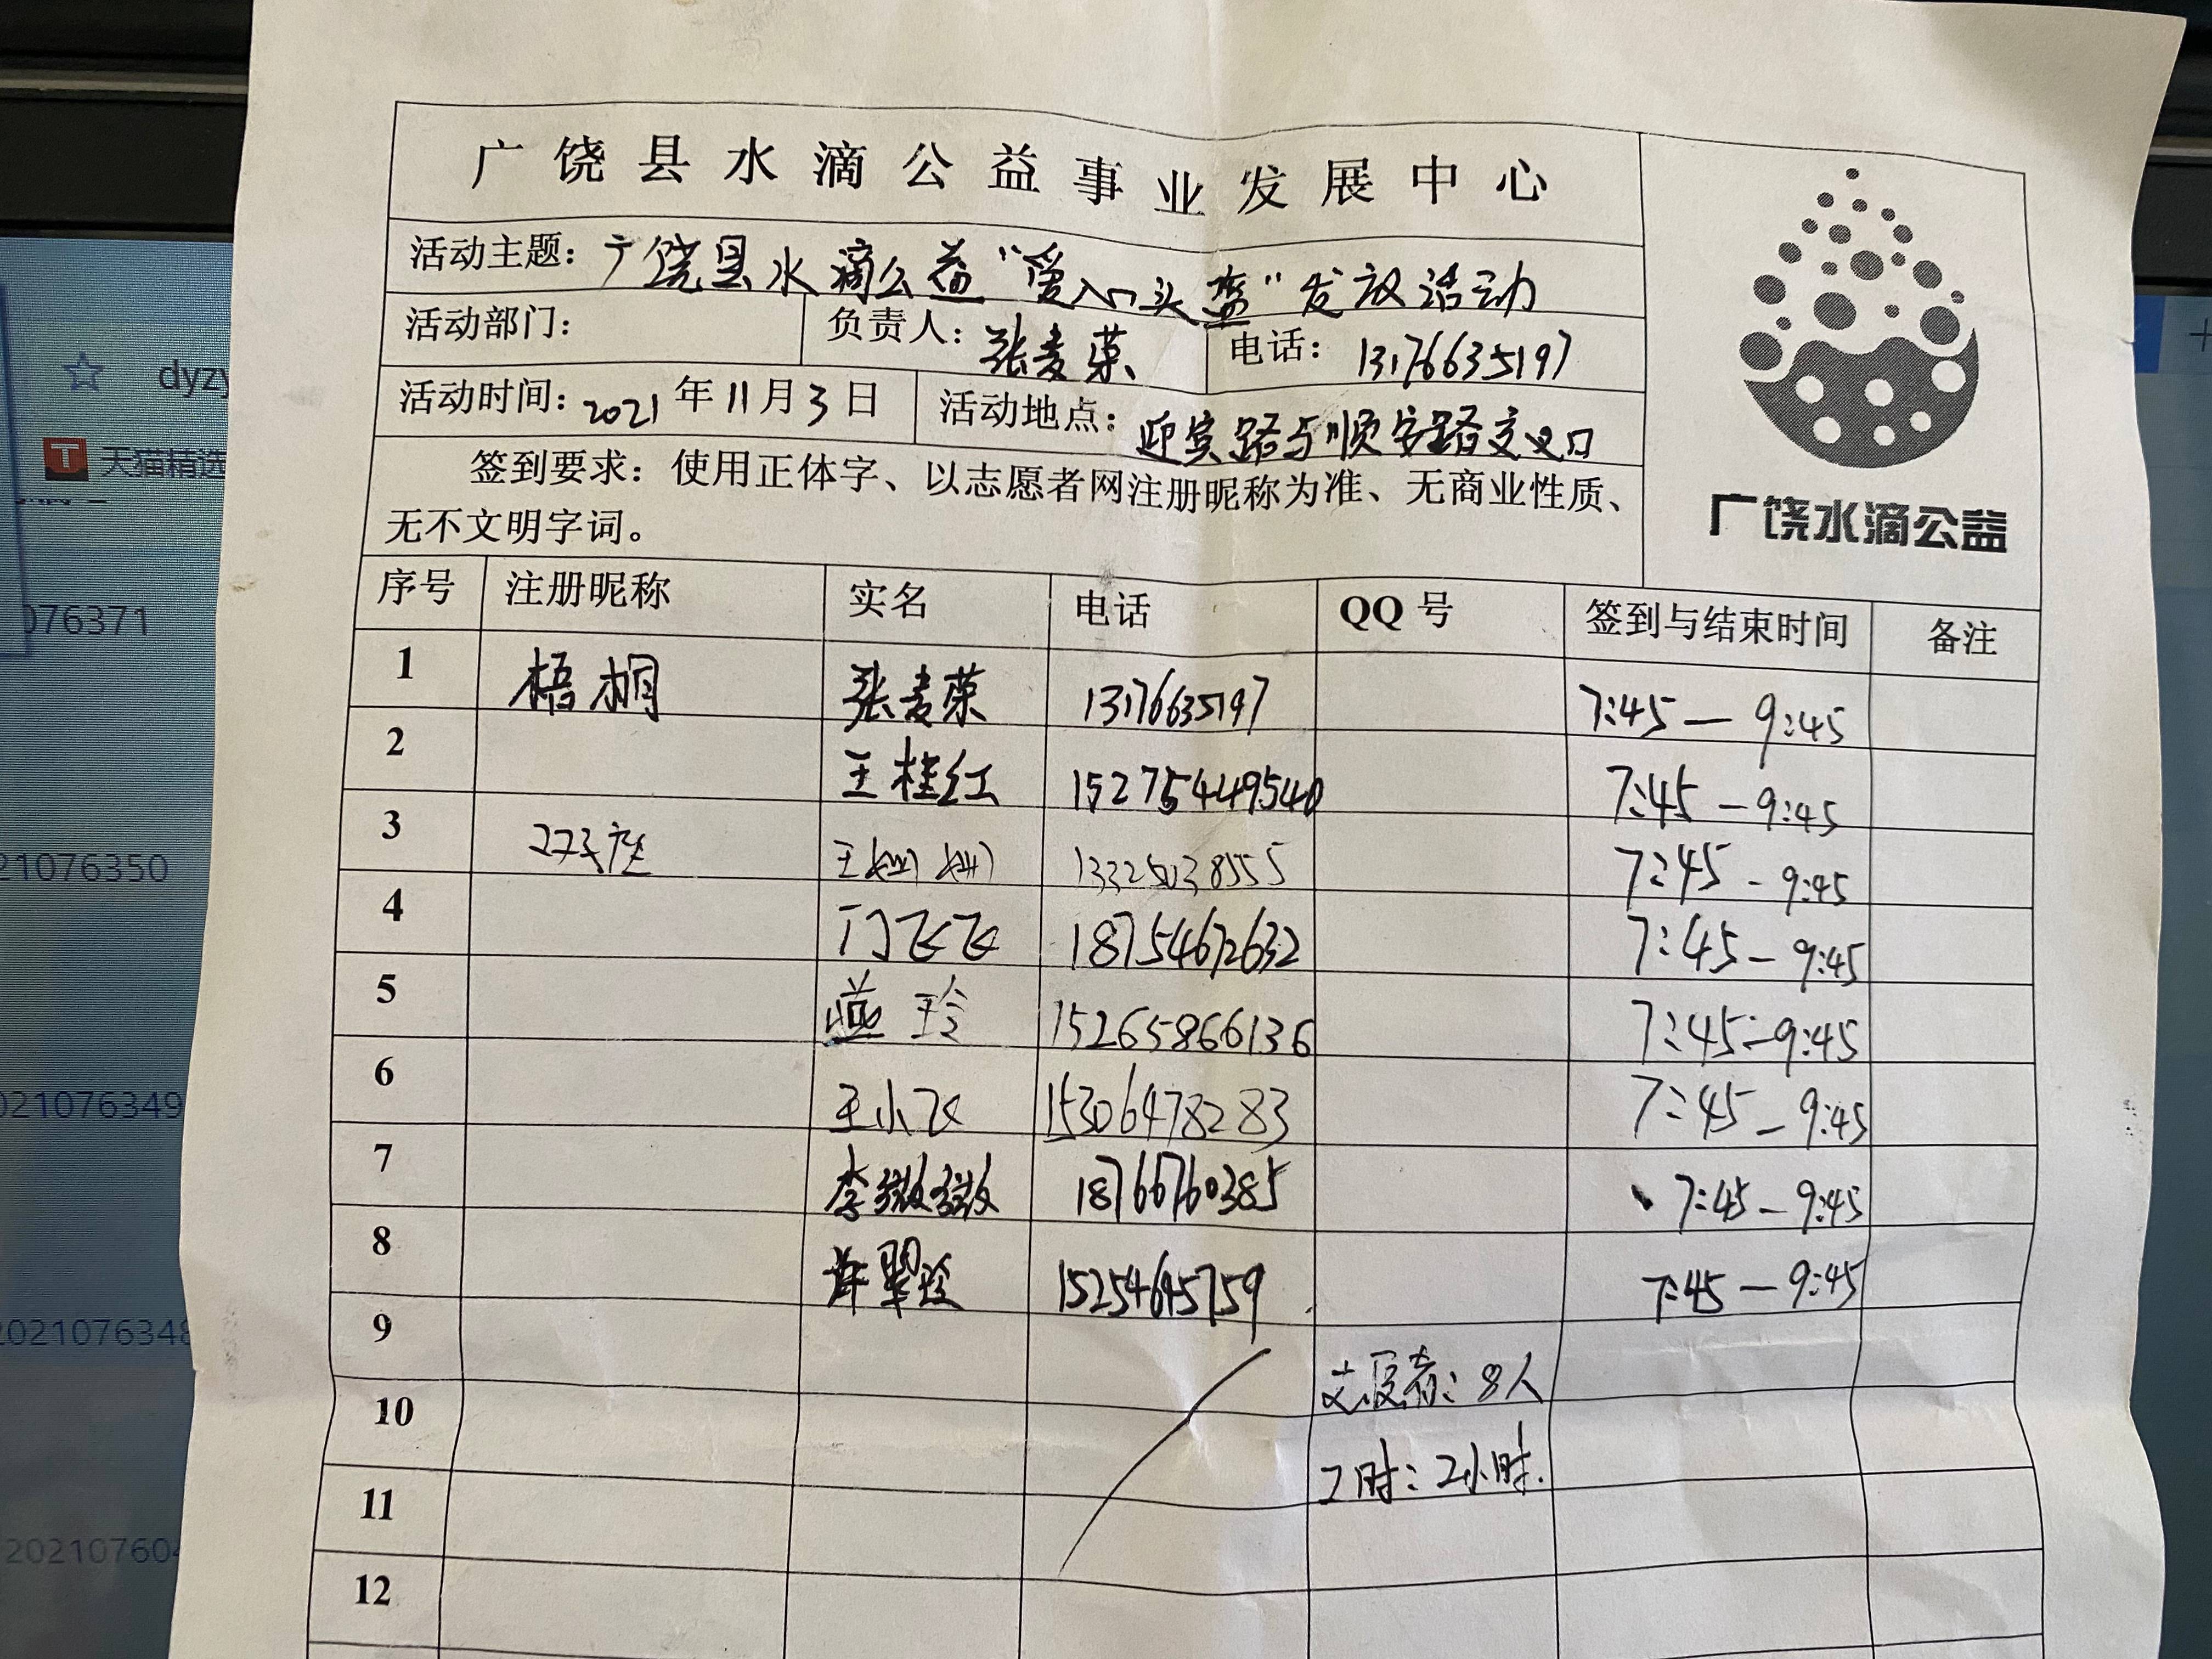 广饶县水滴公益事业发展中心
活动主题：广饶县水滴公益“爱心头盔”发放活动
活动部门： 负责人：张麦荣 电话：13176635197
活动时间：2021年11月3日 活动地点：迎宾路与顺安路交叉口
签到要求：使用正体字、以志愿者网注册昵称为准、无商业性质、
无不文明字词。
广饶水滴公益
序号 注册昵称 实名 电话 QQ号 签到与结束时间 备注
1 梧桐 张麦荣 13176635197 7:45—9:45
2 王桂红 15275449540 7:45—9:45
3 王姗姗 13325038555 7:45-9:45
4 门飞飞 18754672632 7:45—9:45
5 玲 15265866136 7:45—9:45
6 王小飞 15306478283 7:45—9:45
7 李微微 18766760385 7:45—9:45
8 翠玲 15254645759 7:45—9:45
9 者：8人
10 工时：2小时.
11
12
☆ dyzy
天猫精选
076371
21076350
021076349
202107634
20210760